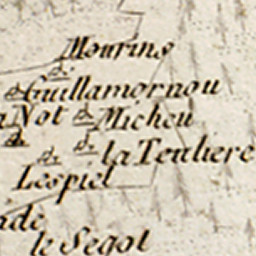 Mourins
Guillamornou
Not Micheu
la Teuliere
Lespiel
le Segol